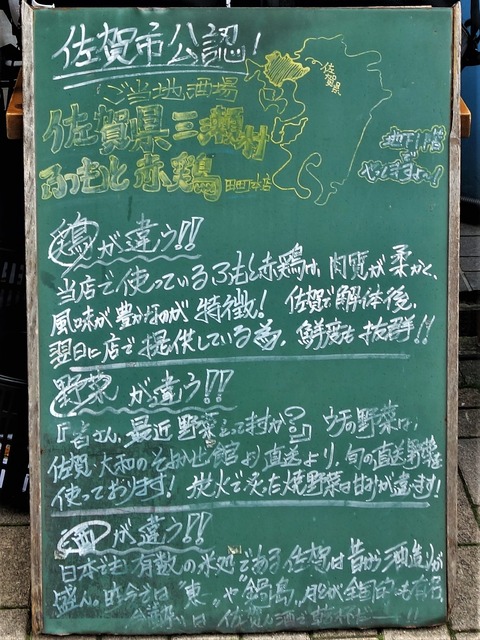 佐賀市公認!
佐賀県
ご当地酒場
佐賀県三瀬村
ふもと赤鶏 田町本店
地下1F店
やってますよ〜!
鶏が違う!!
当店で使っているふもと赤鶏は、肉質が柔かく、
風味が豊かなのが特徴! 佐賀で解体後、
翌日に店で提供している為、鮮度も抜群!!
野菜が違う!!
『皆さん、最近野菜とってますか?』ウチの野菜は、
佐賀 大和の 館より直送より、旬の直送野菜を
使っております! 炭火で た焼野菜は甘みが違います!
酒が違う!!
日本でも有数の米処である佐賀は昔から酒造りが
盛ん。昨今では"東 "や"鍋島"などが全国でも有名
は佐賀の酒で乾杯 !!